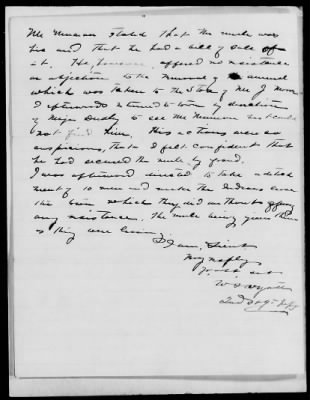 Mr Munson stated that the mule was
his and that he had a bill of sale of
it. He, however, offered no resistance
or objection to the removal of the animal
which was taken to the Store of Mr J Moore
I afterwards returned to town by direction
of Major Dudly to see Mr Munson but could
not find him. His actions were so
suspicious, that I felt confident that
he had secured the mule by fraud.
I was afterward directed to take a detach
ment of 10 men and make the Indians leave
the town which they did without offering
any resistance. The mule being given them
as they were leaving.
I am, Lieut
Very respectfully
Your obt svt